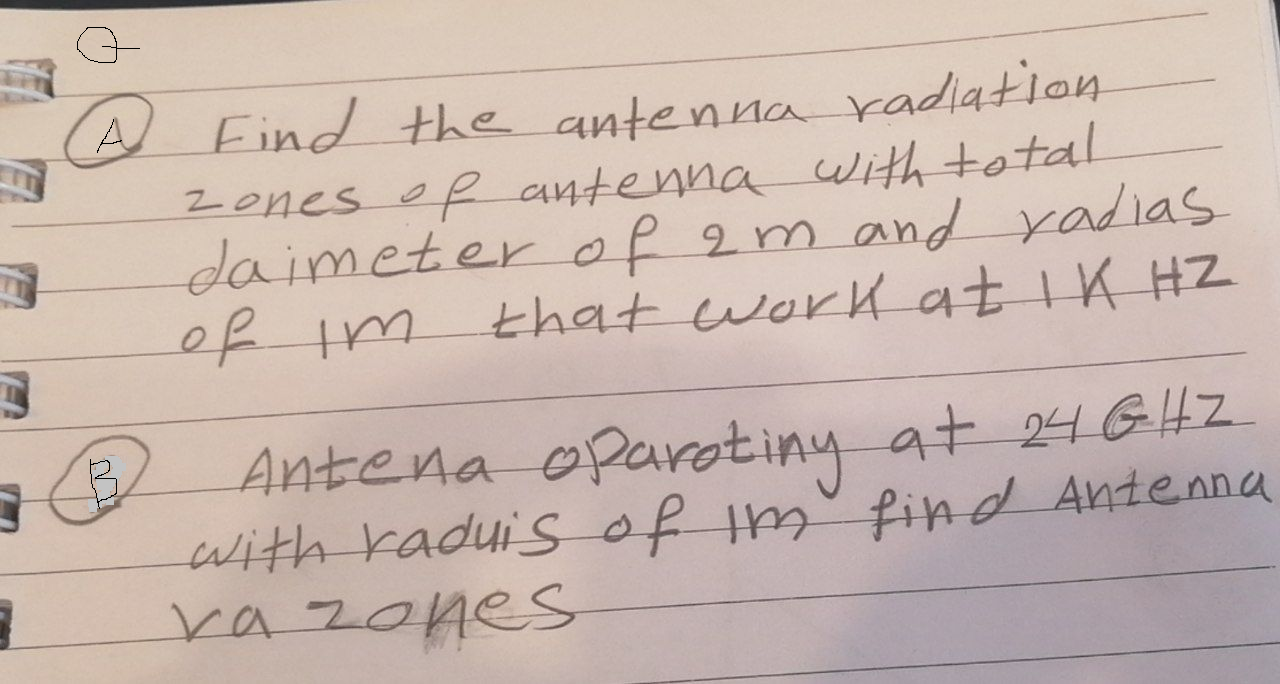 Q-
A Find the antenna radiation
zones of antenna with total
daimeter of 2m and radias
of 1m that work at 1 K HZ
B Antena oparotiny at 24 GHZ
with raduis of 1m find Antenna
ra zones